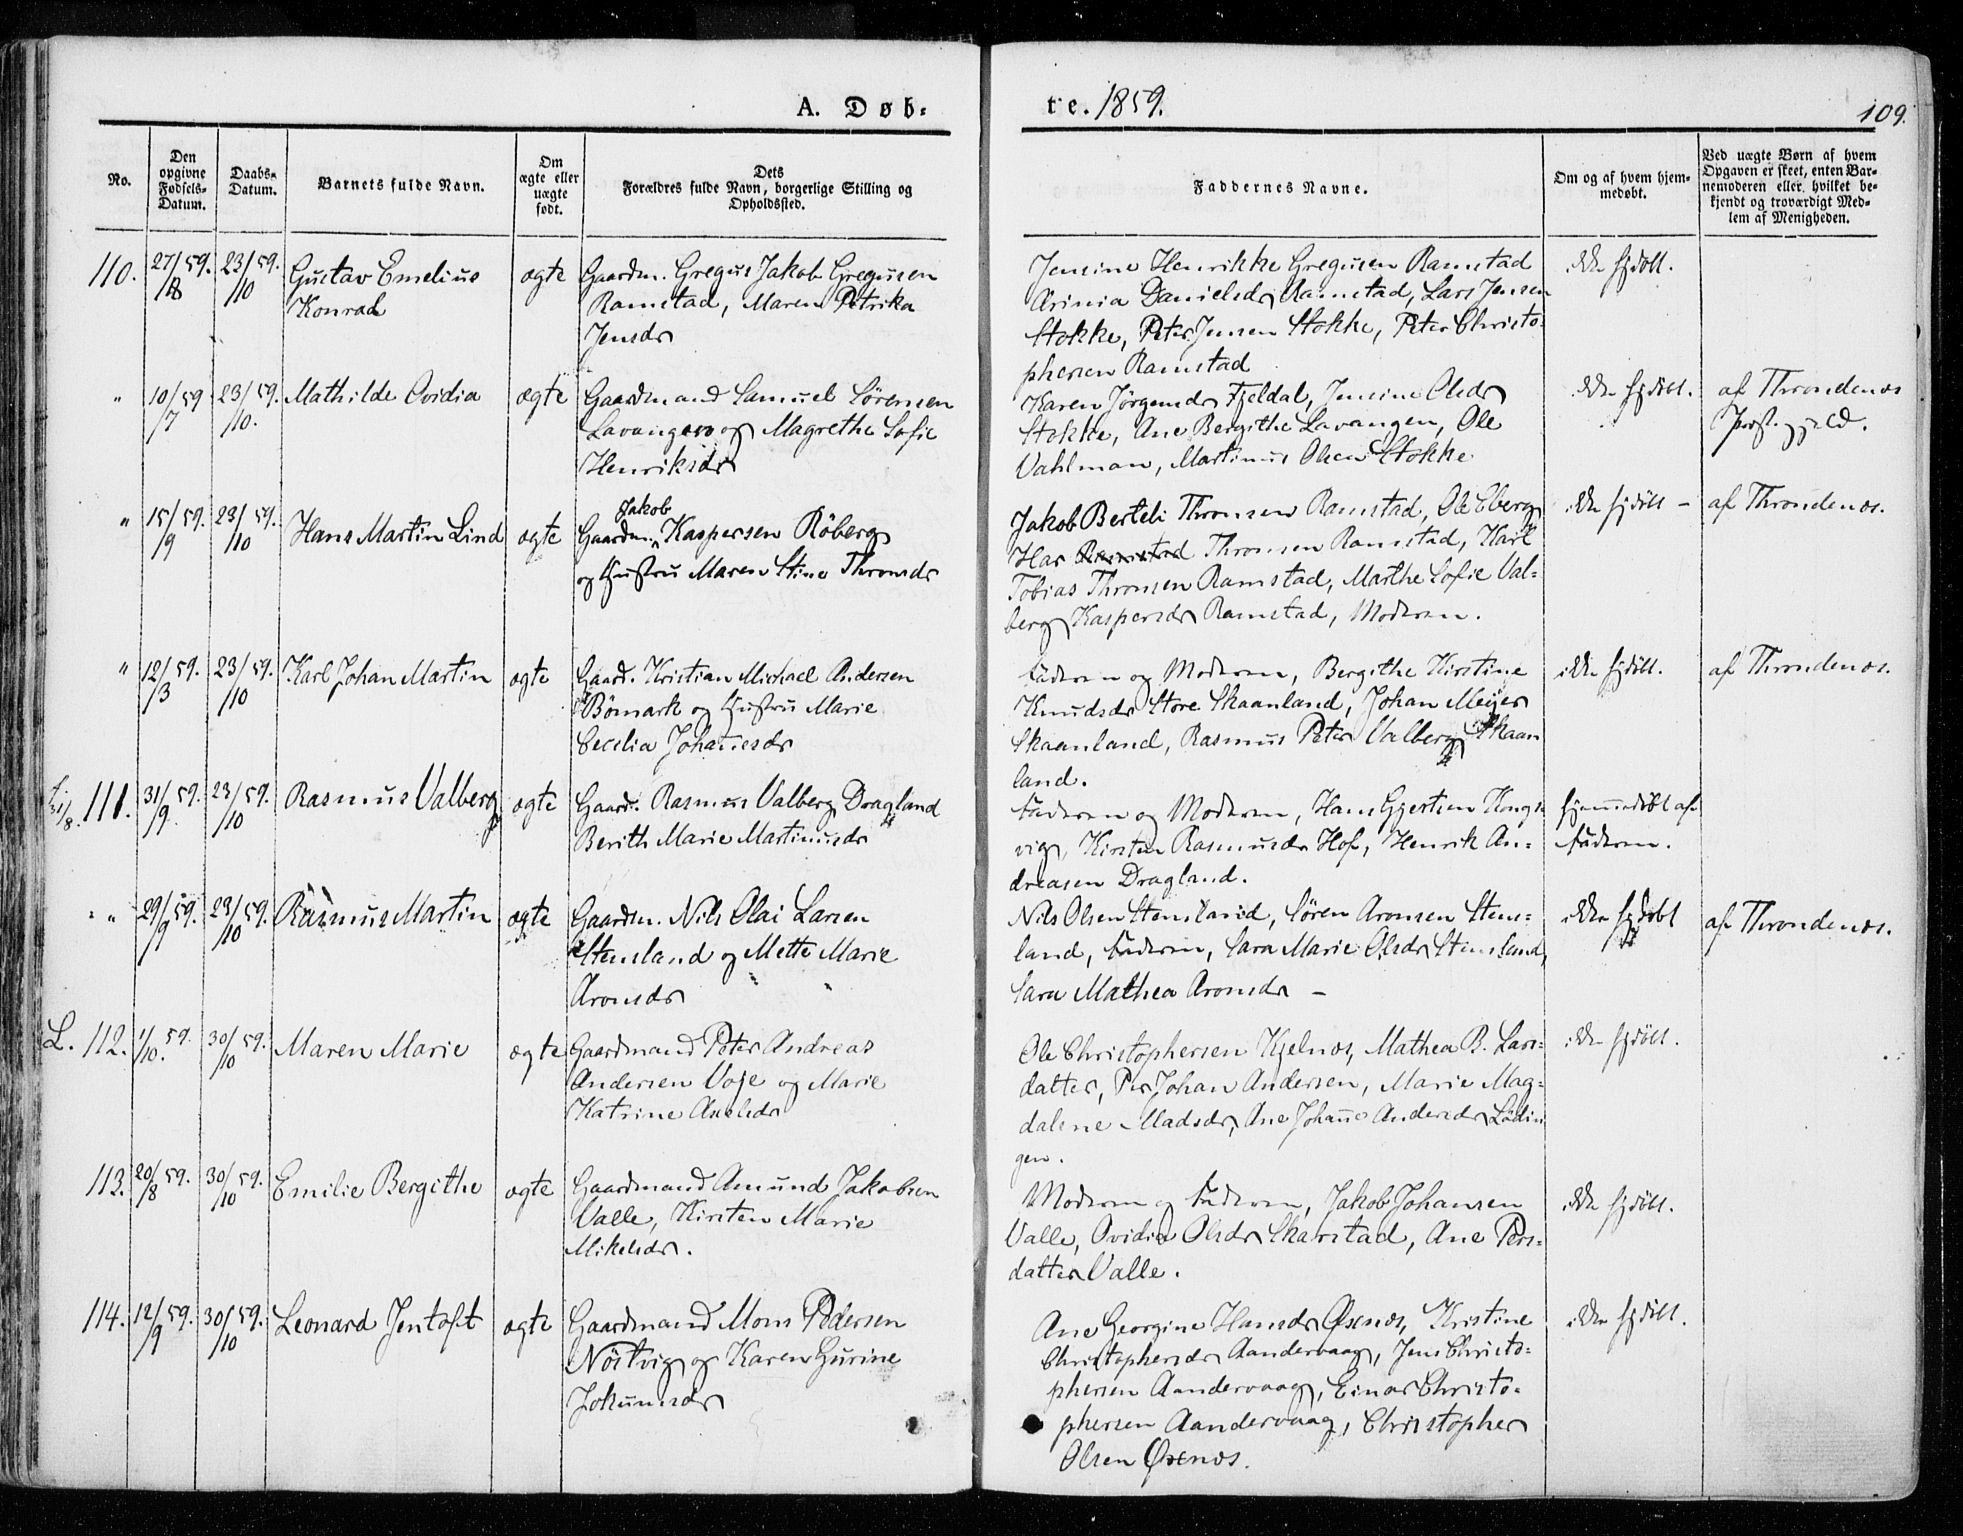 A. Døb-
te. 1859.
109.
No.
Den opgivne Fødsels-Datum.
Daabs-Datum.
Barnets fulde Navn.
Om ægte eller uægte født.
Dets Forældres fulde Navn, borgerlige Stilling og Opholdssted.
Faddernes Navne.
Om og af hvem hjem-medøbt.
Ved uægte Børn af hvem Opgaven er skeet, enten Bar-nemoderen eller hvilket be-kjendt og troværdigt Med-lem af Menigheden.
110. 27/8 59. 23/10 59. Gustav Emelius Konrad
ægte
Gaardm. Gregus Jakob Gregusen
Ramstad, Maren Petrika
Jensdr
Jensine Henrikke Gregusen Ramstad
Arinia Danielsdr Ramstad, Lars Jensen
Stokke, Peter Jensen Stokke, Peter Christo-
phersen Ramstad
ikke hjdöbt.
" 10/7 59 23/10 59. Mathilde Ovidia
ægte
Gaardmand Samuel Sörensen
Lavangen og Magrethe Sofie
Henriksdr
Karen Jörgensdr Fjeldal, Jensine Olsdr
Stokke, Ane Bergithe Lavangen, Ole
Vahlman, Martinus Olsen Stokke
ikke hjdöbt.
af Throndenæs
Præst.gjæld.
" 15/9 59. 23/10 59. Hans Martin Lind
ægte
Jakob
Gaardm. Kaspersen Röberg
og Hustru Maren Stine Thronsdr
Jakob Berteli Thronsen Ramstad, Ole Eberg
Thronsen Ramstad, Karl
Tobias Thronsen Ramstad, Marthe Sofie Val-
berg Kaspersdr Ramstad, Moderen.
ikke hjdöbt -
af Throndenæs.
" 12/3 59. 23/10 59. Karl Johan Martin
ægte
Gaard. Kristian Michael Andersen
Bömark og Hustru Marie
Cecilia Johanesdr
Faderen og Moderen, Bergithe Kirstine
Knudsdr Store Skaanland, Johan Meyer
Skaanland, Rasmus Peter Valberg Skaan
land.
ikke hjdöbt.
af Throndenæs.
111. 31/9 59. 23/10 59. Rasmus Valberg
ægte
Gaard. Rasmus Valberg Dragland
Berith Marie Martinusdr
Faderen og Moderen, Hans Ggertsen Kongs
vig, Kirsten Rasmusdr Hof, Henrik An-
dreasen Dragland.
hjemmedöbt af
Faderen.
" 29/9 59. 23/10 59. Rasmus Martin
ægte
Gaardm. Nils Olai Larsen
Stensland og Mette Marie
Aronsdr
Nils Olsen Stensland, Sören Aronsen Stens-
land, Faderen, Sara Marie Olsdr Stensland,
Sara Mathea Aronsdr -
ikke hjdöbt
af Throndenæs.
L. 112. 1/10. 59. 30/10 59. Maren Marie
ægte
Gaardmand Peter Andreas
Andersen Voje og Marie
Katrine Axelsdr
Ole Christophersen Kjelnæs, Mathea B. Lars-
datter, Per Johan Andersen, Marie Mag-
dalene Madsdr, Ane Johanne Andersdr Lödin
gen.
ikke hjdöbt.
113. 20/8 59. 30/10 59. Emilie Bergithe
ægte
Gaardmand Amund Jakobsen
Valle, Kirsten Marie
Mikelsdr.
Moderen og Faderen, Jakob Johansen
Valle, Ovidia Olsdr Skarstad, Ane Pers-
datter Valle.
ikke hjdöbt.
114. 12/9 59. 30/10 59. Leonard Jentoft
ægte
Gaardmand Mons Pedersen
Nöstvig og Karen Gurine
Jokumsdr
Ane Georgine Hansdr Øxnæs, Kristine
Christophersdr Aandervaag, Jens Christo-
phersen Aandervaag, Einar Christo-
phersen Aandervaag, Christopher
Olsen Øxnæs.
ikke hjdöbt.